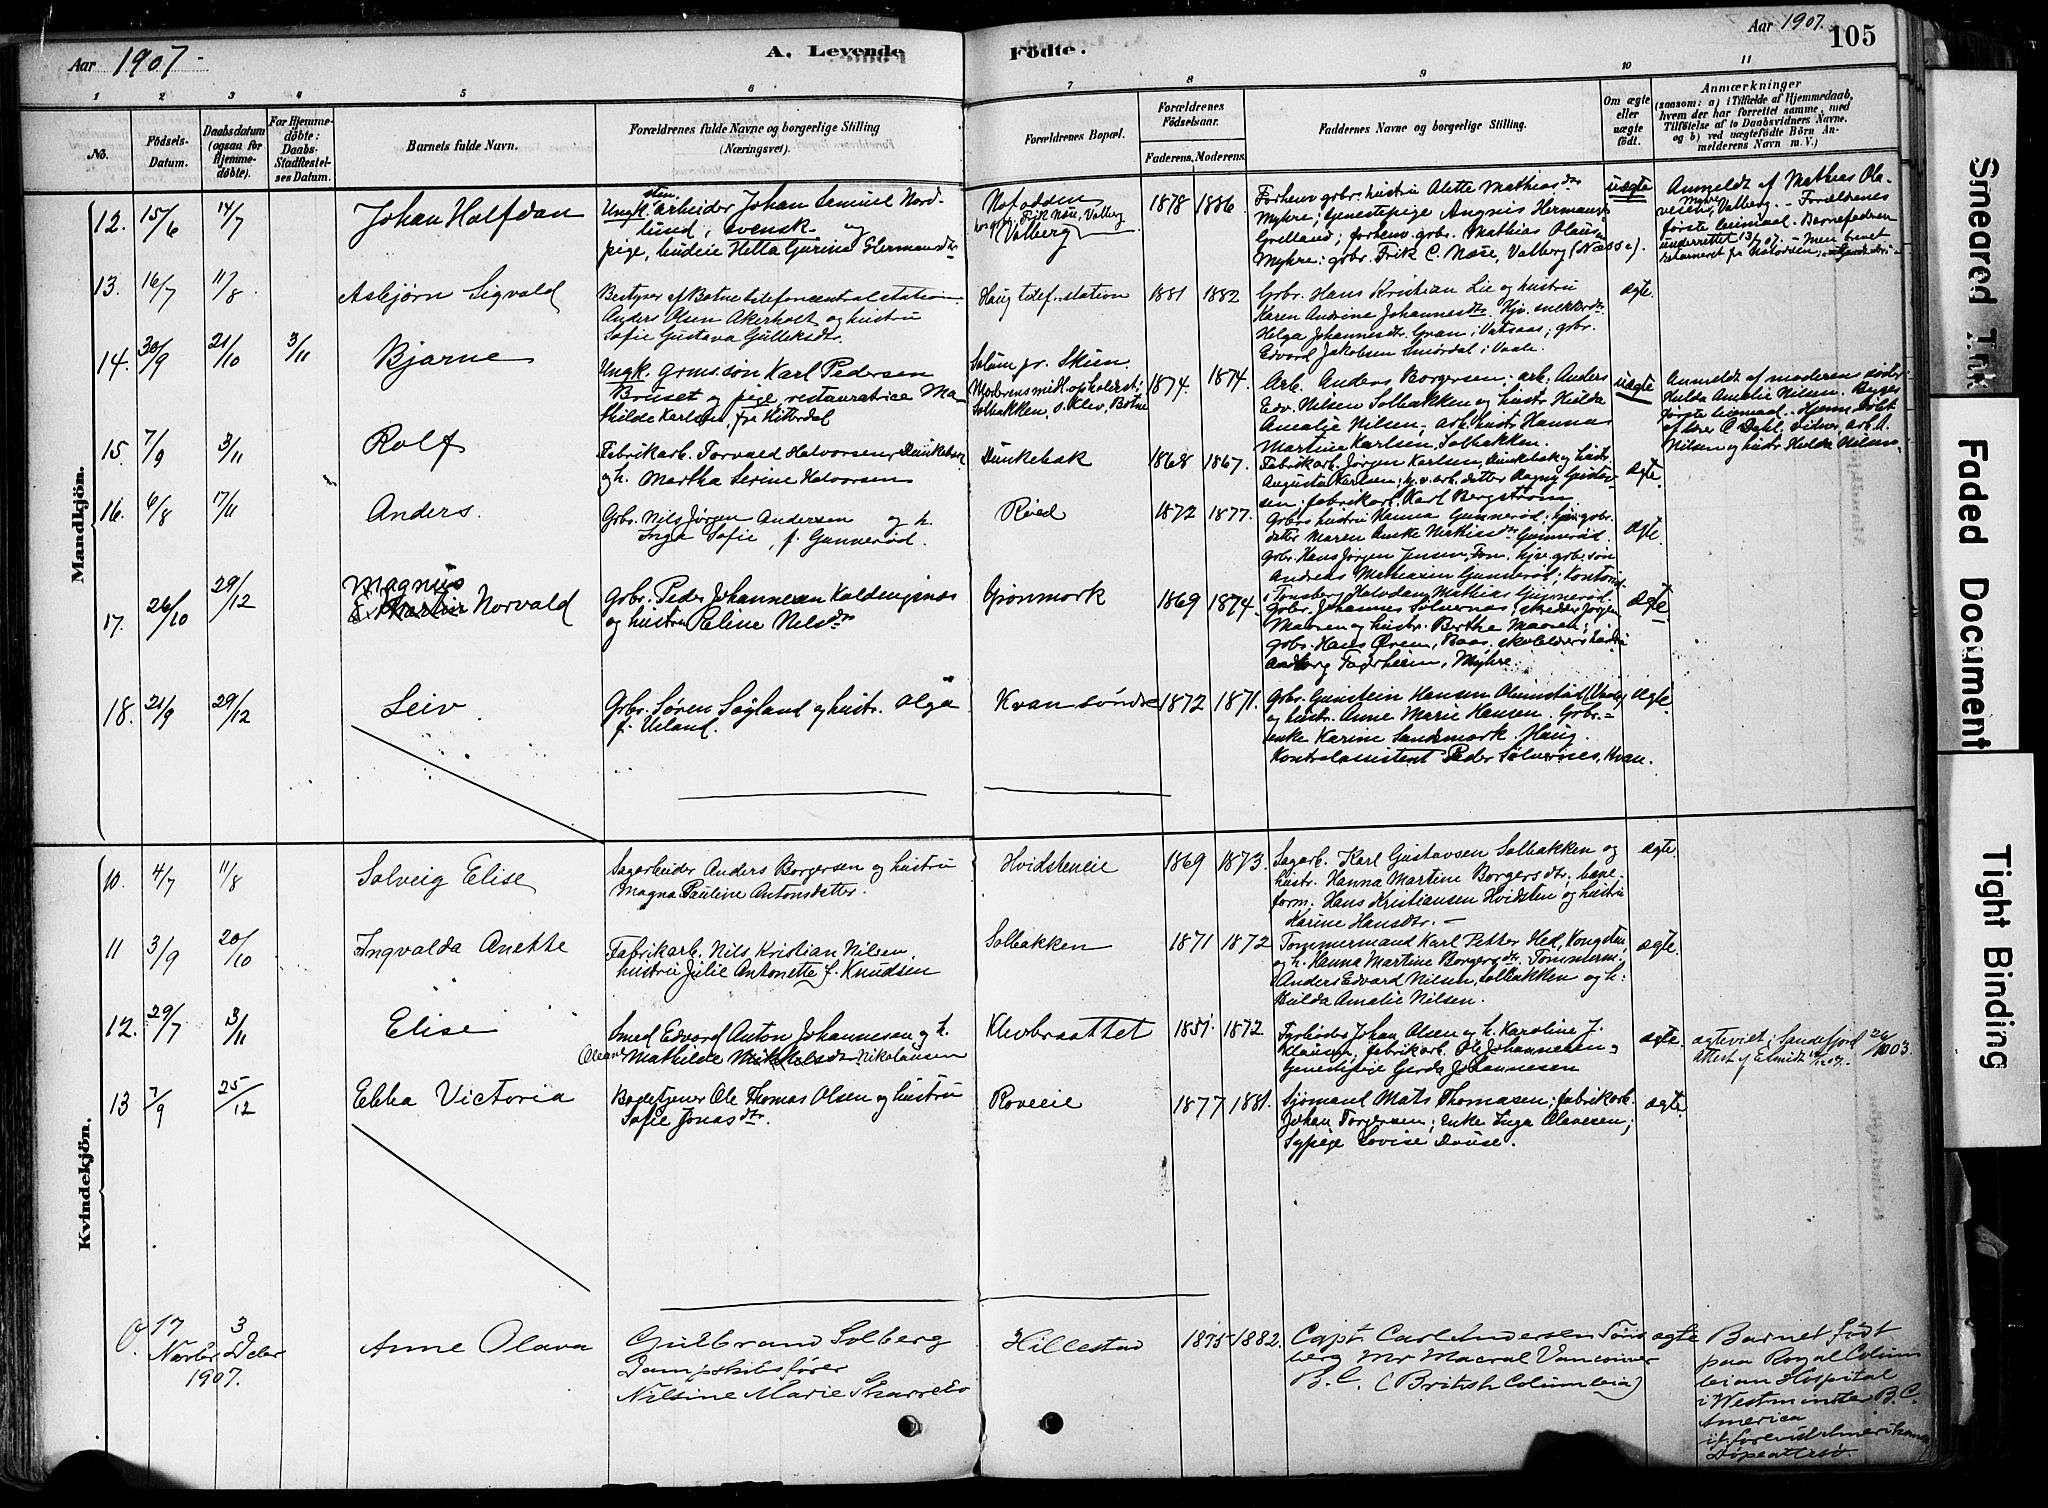 Aar 1907.
A. Levende
Födte.
Aar 1907.
105
1 2 3 4 5 6 7 8 9 10 11
No.
Födsels-
Datum.
Daabsdatum
(ogsaa for
Hjemme-
döbte).
For Hjemme-
döbte:
Daabs-
Stadfæstel-
ses Datum.
Barnets fulde Navn.
Forældrenes fulde Navne og borgerlige Stilling
(Næringsvei).
Forældrenes Bopæl.
Forældrenes
Födselsaar.
Faderens. Moderens.
Faddernes Navne og borgerlige Stilling.
Om ægte
eller
uægte
födt.
Anmærkninger
(saasom: a) i Tilfælde af Hjemmedaab,
hvem der har forrettet samme, med
Tilföielse af to Daabsvidners Navne.
og b) ved uægtefödte Börn An-
melderens Navn m. V.)
Mandkjön.
12. 15/6 14/7
Johan Halfdan
Ungk. arbeider Johan Semuel Nord-
lund, svensk og
pige, budeie Hetta Gurina Hermansdtr
Notodden
Valberg
1878 1886
Forhenv. grbr. hustru Alette Mathiasdtr
Myhre; tjenestepige Angnis Hermansdtr
Grelland; forhenv. grbr. Mathias Olausen
Myhre; grbr. Frik C. Næse, Valberg (Næsse).
uægte
Anmeldt af Mathias Ola-
vesen, Valberg. - Forældrenes
første leiemaal. Barnefaderen
underrettet 13/7 07. - Men brevet
returneret fra Notodden,
13. 16/7 11/8
Asbjørn Sigvald
Bestyrer af Botne telefoncentralstation
Anders Olsen Akerholt og hustru
Sofie Gustava Gulleksdtr.
Haug telef. station
1881 1882
Grbr. Hans Kristian Lie og hustru
Karen Andrine Johannesdtr. Hjv.
Helga Johannesdtr. Gran i Vatsaas; grbr.
Edvard Jakobsen Smørdal i Vaale.
ægte.
14. 30/9 21/10 3/11
Bjarne
Ungk. grms. søn Karl Pedersen
Bruset og pige, restauratrice Ma-
thilde Karlsen fra Hitterdal
Solum pr. Skien.
Moderens midl. opholdsst:
Solbakken, s. Klev, Botne
1874. 1874.
Arb. Anders Borgersen; arb. Anders
Edv. Nilsen Solbakken og hustr. Hulda
Amalie Nilsen; arb. hustr. Hanna
Martine Karlsen Solbakken.
uægte
Anmeldt af moderens søster
Hulda Amalie Nilsen. Begges
første leiemaal. Hjemmedøbt
af lærer C. Dahl, vidner, arb. A.
Nilsen og hustr. Hulda Nilsen.
15. 7/9 3/11
Rolf
Fabrikarb. Torvald Halvorsen, Dunkebæk
og h. Martha Serine Halvorsen
Dunkebæk
1868 1867.
Fabrikarb. Jørgen Karlsen, Dunkebæk og hustr.
Augusta Karlsen; hj.v. arb. datter Dagny Gustav-
sen; fabrikarb. Karl Bergstrøm.
ægte.
16. 6/8 17/11
Anders.
Grbr. Nils Jørgen Andersen og h.
Inga Sofie, f. Gunnerød.
Røed
1872 1877.
Grbrs hustru Hanna Gunnerød; grbr.
datter Maren Anke Mathisdtr Gunnerød.
grbr. Hans Jørgen Jensen, Fon, hjv. grbr. søn
Andreas Mathiasen Gunnerød; kontorist
i Tønsberg Halvdan Mathias Gunnerød.
ægte.
17. 26/10 29/12
Magnus
Norvald
Grbr. Peder Johannesen Koldengsnæs
og hustru Eline Nilsdtr
Grønmork
1869 1874.
Grbr. Johannes Sølvernæs, skræder Jørgen
Maaren og hustr. Berthe Maaren;
grbr. Hans Øren, Baas, skolelærers hustru
Andborg Fagerheim, Myhre.
ægte
18. 21/9 29/12
Leiv.
Grbr. Søren Søyland og hustr. Olga
f. Ueland.
Kvan søndre
1872 1871.
Grbr. Gunstein Hansen Olumstad (Vaale)
og hustr. Anne Marie Hansen. Grbr.-
enke Karine Sandsmork. Haug.
Kontrolassistent Peder Sølvernes, Kvan.
ægte.
Kvindekjön.
10. 4/7 11/8
Solveig Elise
Sagarbeider Anders Borgersen og hustru
Magna Pauline Antonsdatter.
Hvidsteneie
1869 1873.
Sagarb. Karl Gustavsen Solbakken og
hustr. Hanna Martine Borgersdtr; bane-
form. Hans Kristiansen Hvidsten og hustru
Karine Hansdtr. -
ægte.
11 3/9 20/10
Ingvalda Anette
Fabrikarb. Nils Kristian Nilsen,
hustru Julie Antonette f. Knudsen
Solbakken
1871 1872
Tømmermand Karl Petter Hed, Kongsten,
og h. Hanna Martine Borgersdtr. Tømmerm.
Anders Edvard Nilsen, Solbakken og h.
Hulda Amalie Nilsen.
ægte.
12. 29/7 3/11
Elise
Smed Edvard Anton Johannesen og h.
Oleane Mathilde Mikkelsdtr Nikolaisen
Klevbraattet
1851. 1872
Fyrbøder Johan Olsen og h. Karoline J.
Klausen, fabrikarb. Ole Johannesen,
Genestpige Gerda Johannesen
ægte.
ægteviet i Sandefjord 26/ 1903.
13 7/9 25/12
Ebba Victoria
Bagetjener Ole Thomas Olsen og hustru
Sofie Jonasdtr.
Roveeie
1877 1881.
Sjømand Mats Thomasen; fabrikarb.
Johan Torgersen; enke Inga Olavesen;
Sypige Lovise Douse.
ægte.
0. 17 Novbr 3 Decbr
1907.
Anne Olava
Gulbrand Solberg
Dampskibsfører
Nilsine Marie Skarrebo
Hillestad
1875 - 1882.
Capt. Carl Andersen Tøns
berg Mr Macral Vancouver
B.C. (British Columbia)
ægte
Barnet født
paa Royal Colum
beian Hospital
i Westminster B.C.
America
if. forevist Amerikansk
Døpeattest.
Smeared Ink
Faded Document
Tight Binding